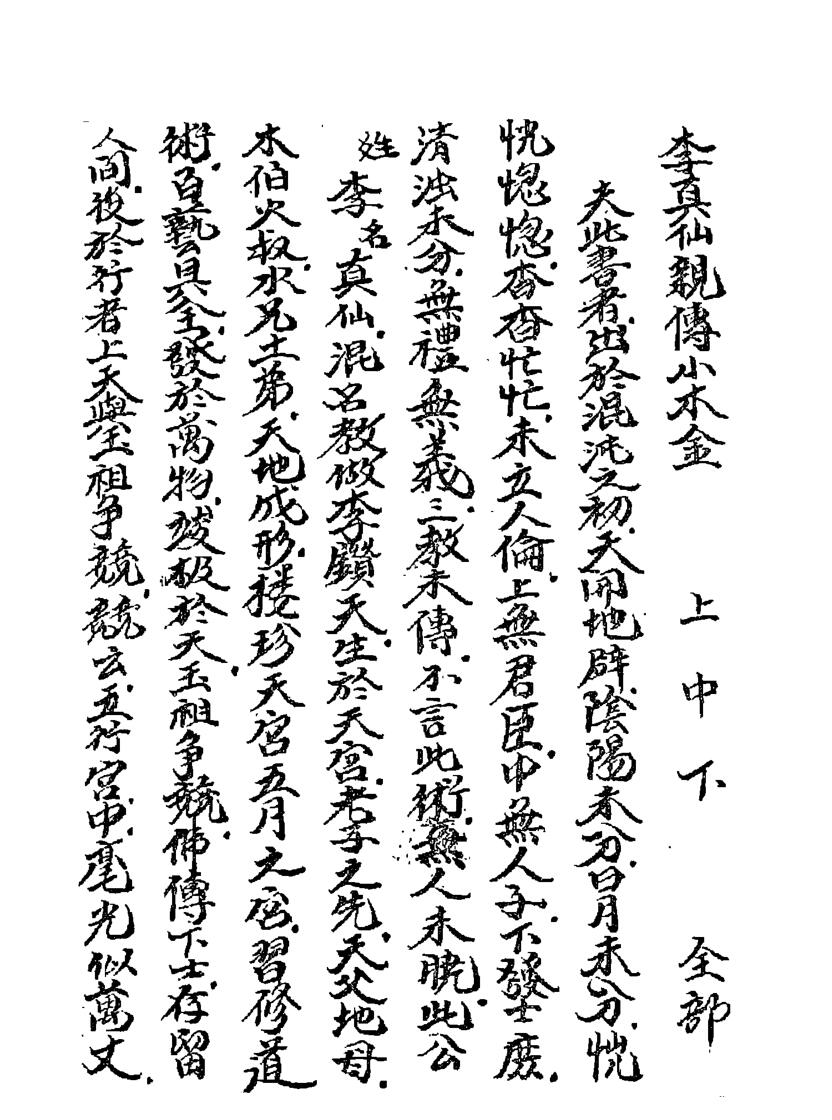 李真仙親傳小木金 上中下 全部
夫此書者出於混沌之初天開地辟陰陽未分日月未分恍
恍惚惚杳杳忙忙未立人倫上無君臣中無人子下發士庶
清浊未分無禮無義三教未傳不言此術無人未曉此公
姓李名真仙混名教做李鑽天生於天宮老子之先天父地母
木伯火叔水兄土弟天地成形楼珍天宮五月之宮習修道
術百藝具全發於萬物發极於天玉祖争競佛傳下士存留
人間後於行者上天與玉祖争競競云五行宮中毫光似萬丈